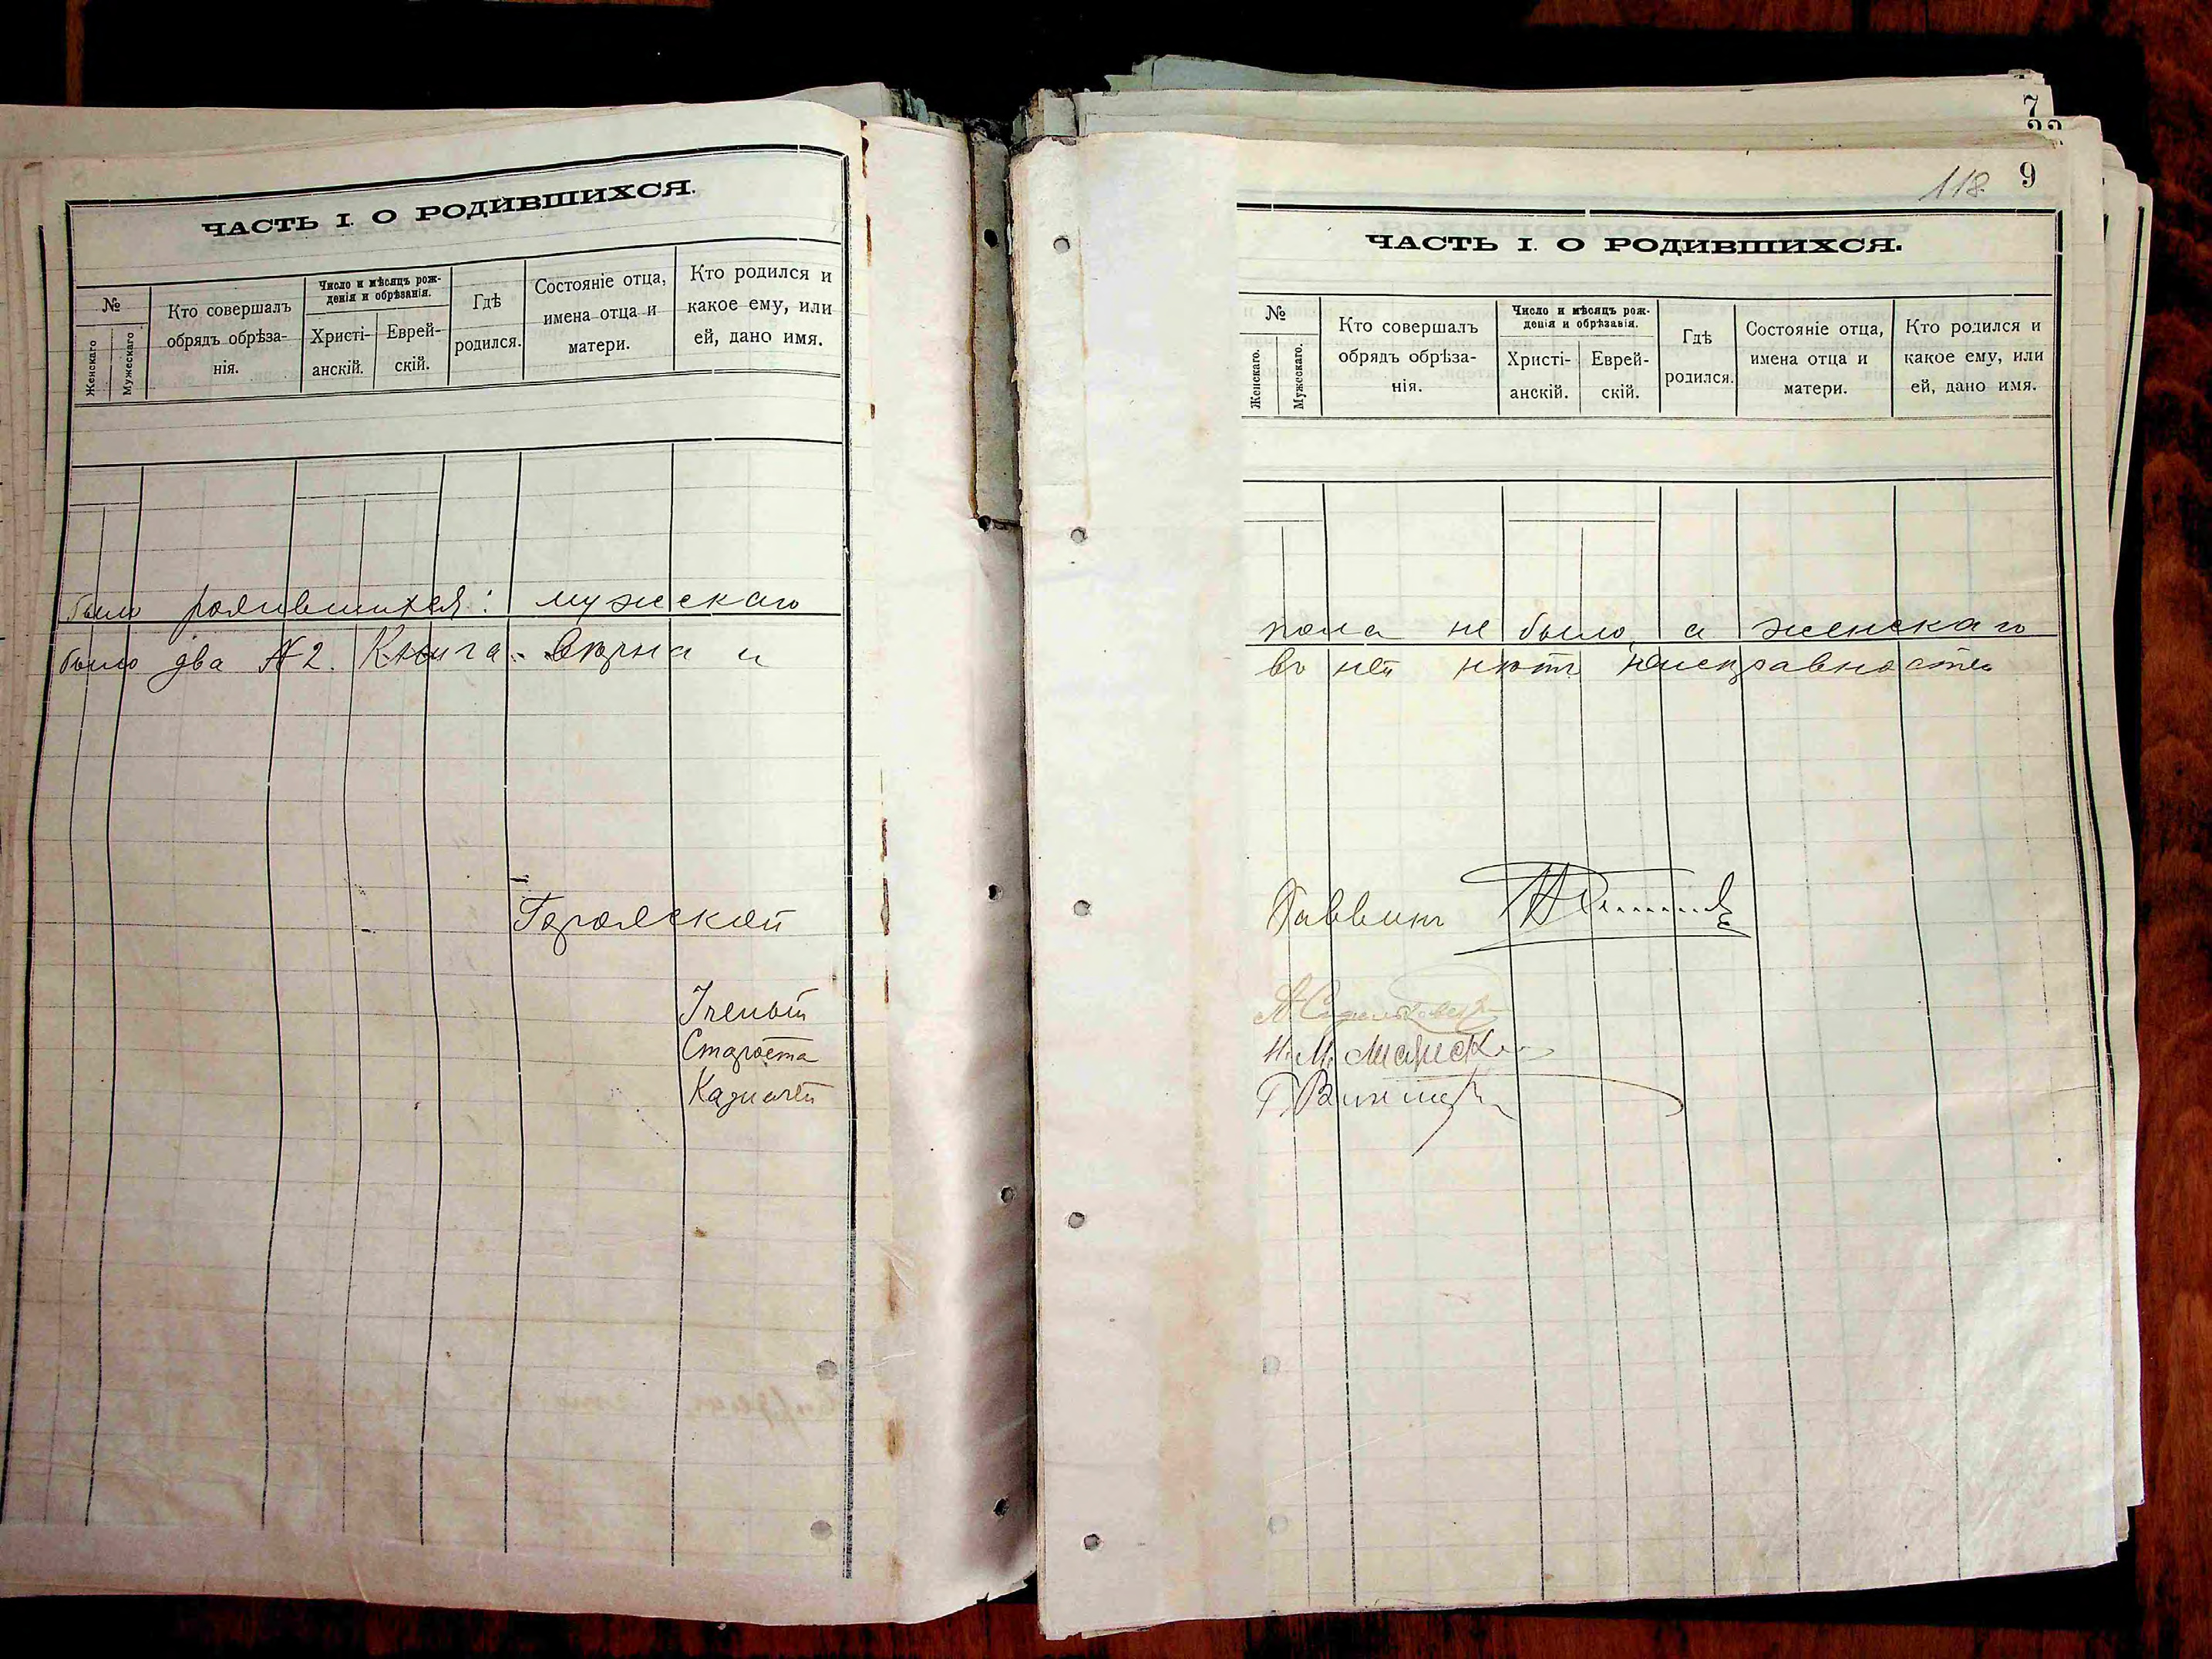 ЧАСТЬ I. О РОДИВШИХСЯ.
№
Женскаго
Мужескаго
Кто совершалъ
обрядъ обрѣза-
нія.
Число и мѣсяцъ рож-
денія и обрѣзанія.
Христі-
анскій.
Еврей-
скій.
Гдѣ
родился.
Состояніе отца,
имена отца и
матери.
Кто родился и
какое ему, или
ей, дано имя.
было родившихся: мужскаго
было два № 2. Книга вѣрна и
Городской
Ученый
Староста
Казначей
7
118
9
ЧАСТЬ I. О РОДИВШИХСЯ.
№
Женскаго.
Мужескаго.
Кто совершалъ
обрядъ обрѣза-
нія.
Число и мѣсяцъ рож-
денія и обрѣзанія.
Христі-
анскій.
Еврей-
скій.
Гдѣ
родился.
Состояніе отца,
имена отца и
матери.
Кто родился и
какое ему, или
ей, дано имя.
пола не было, а женскаго
въ ней нѣтъ неисправностей
Раввинъ